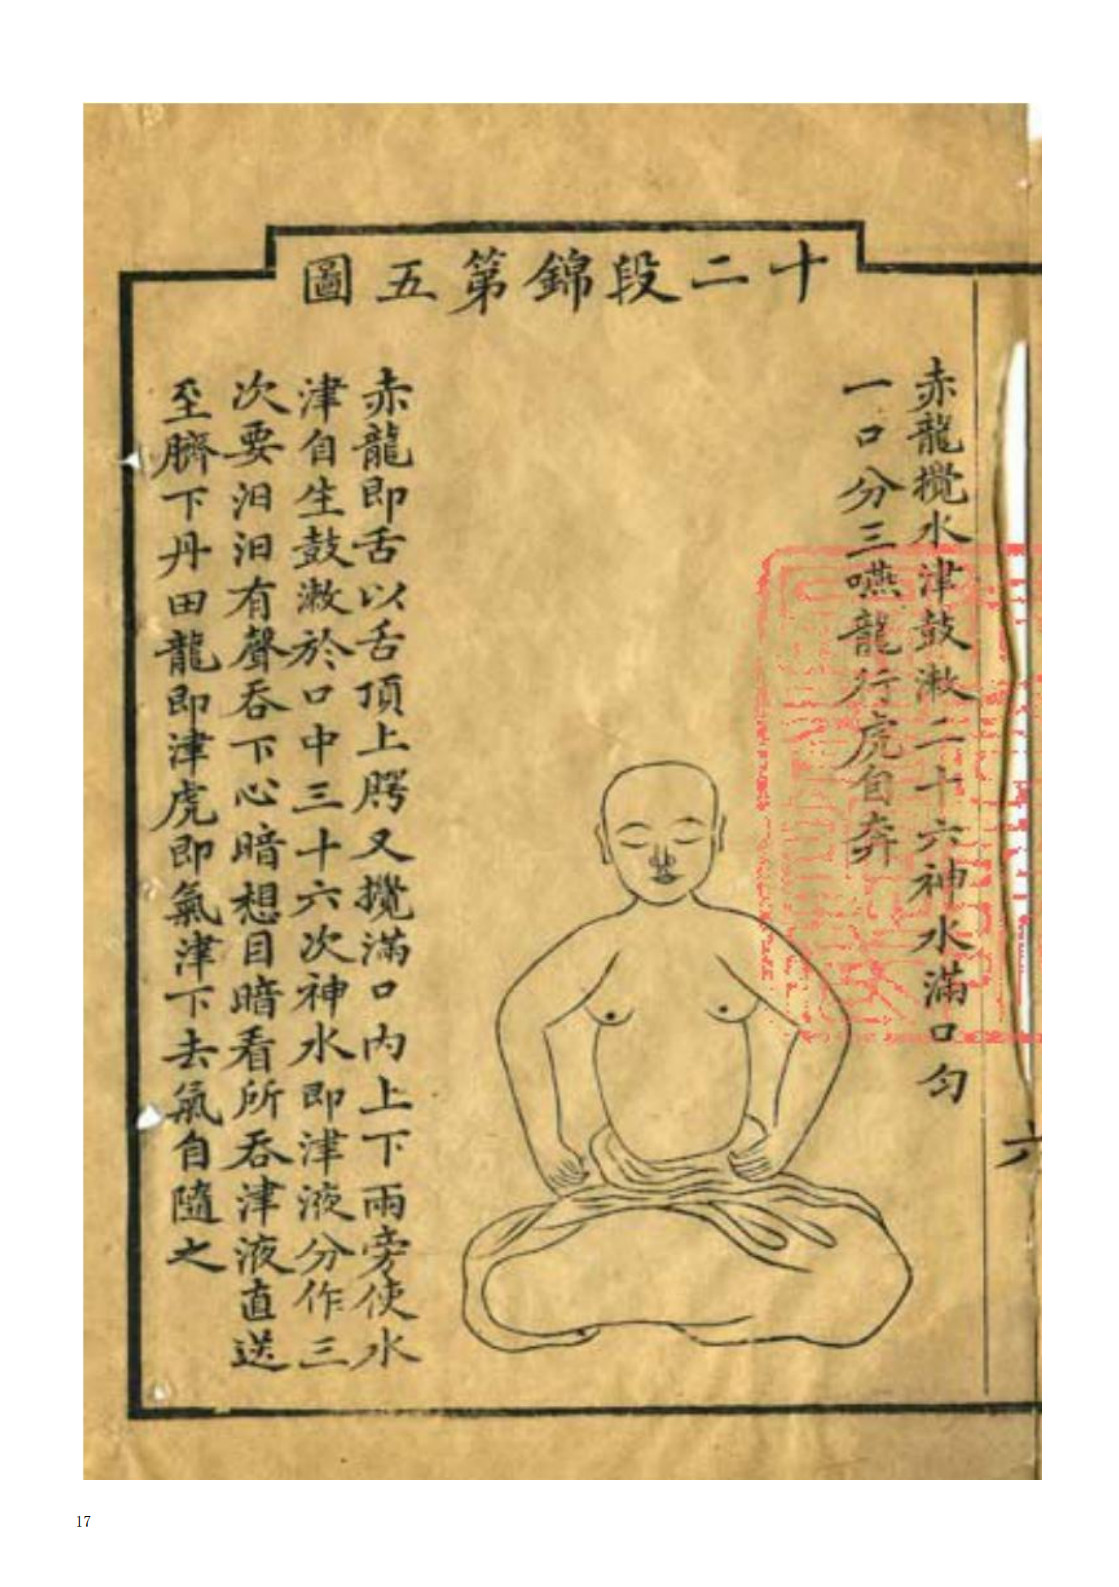 十二段錦第五圖
赤龍攪水津鼓漱二十六神水滿口匀
一口分三嚥龍行虎自奔
赤龍即舌以舌頂上腭又攪滿口內上下兩旁使水
津自生鼓漱於口中三十六次神水即津液分作三
次要汩汩有聲吞下心暗想目暗看所吞津液直送
至臍下丹田龍即津虎即氣津下去氣自隨之
六
17